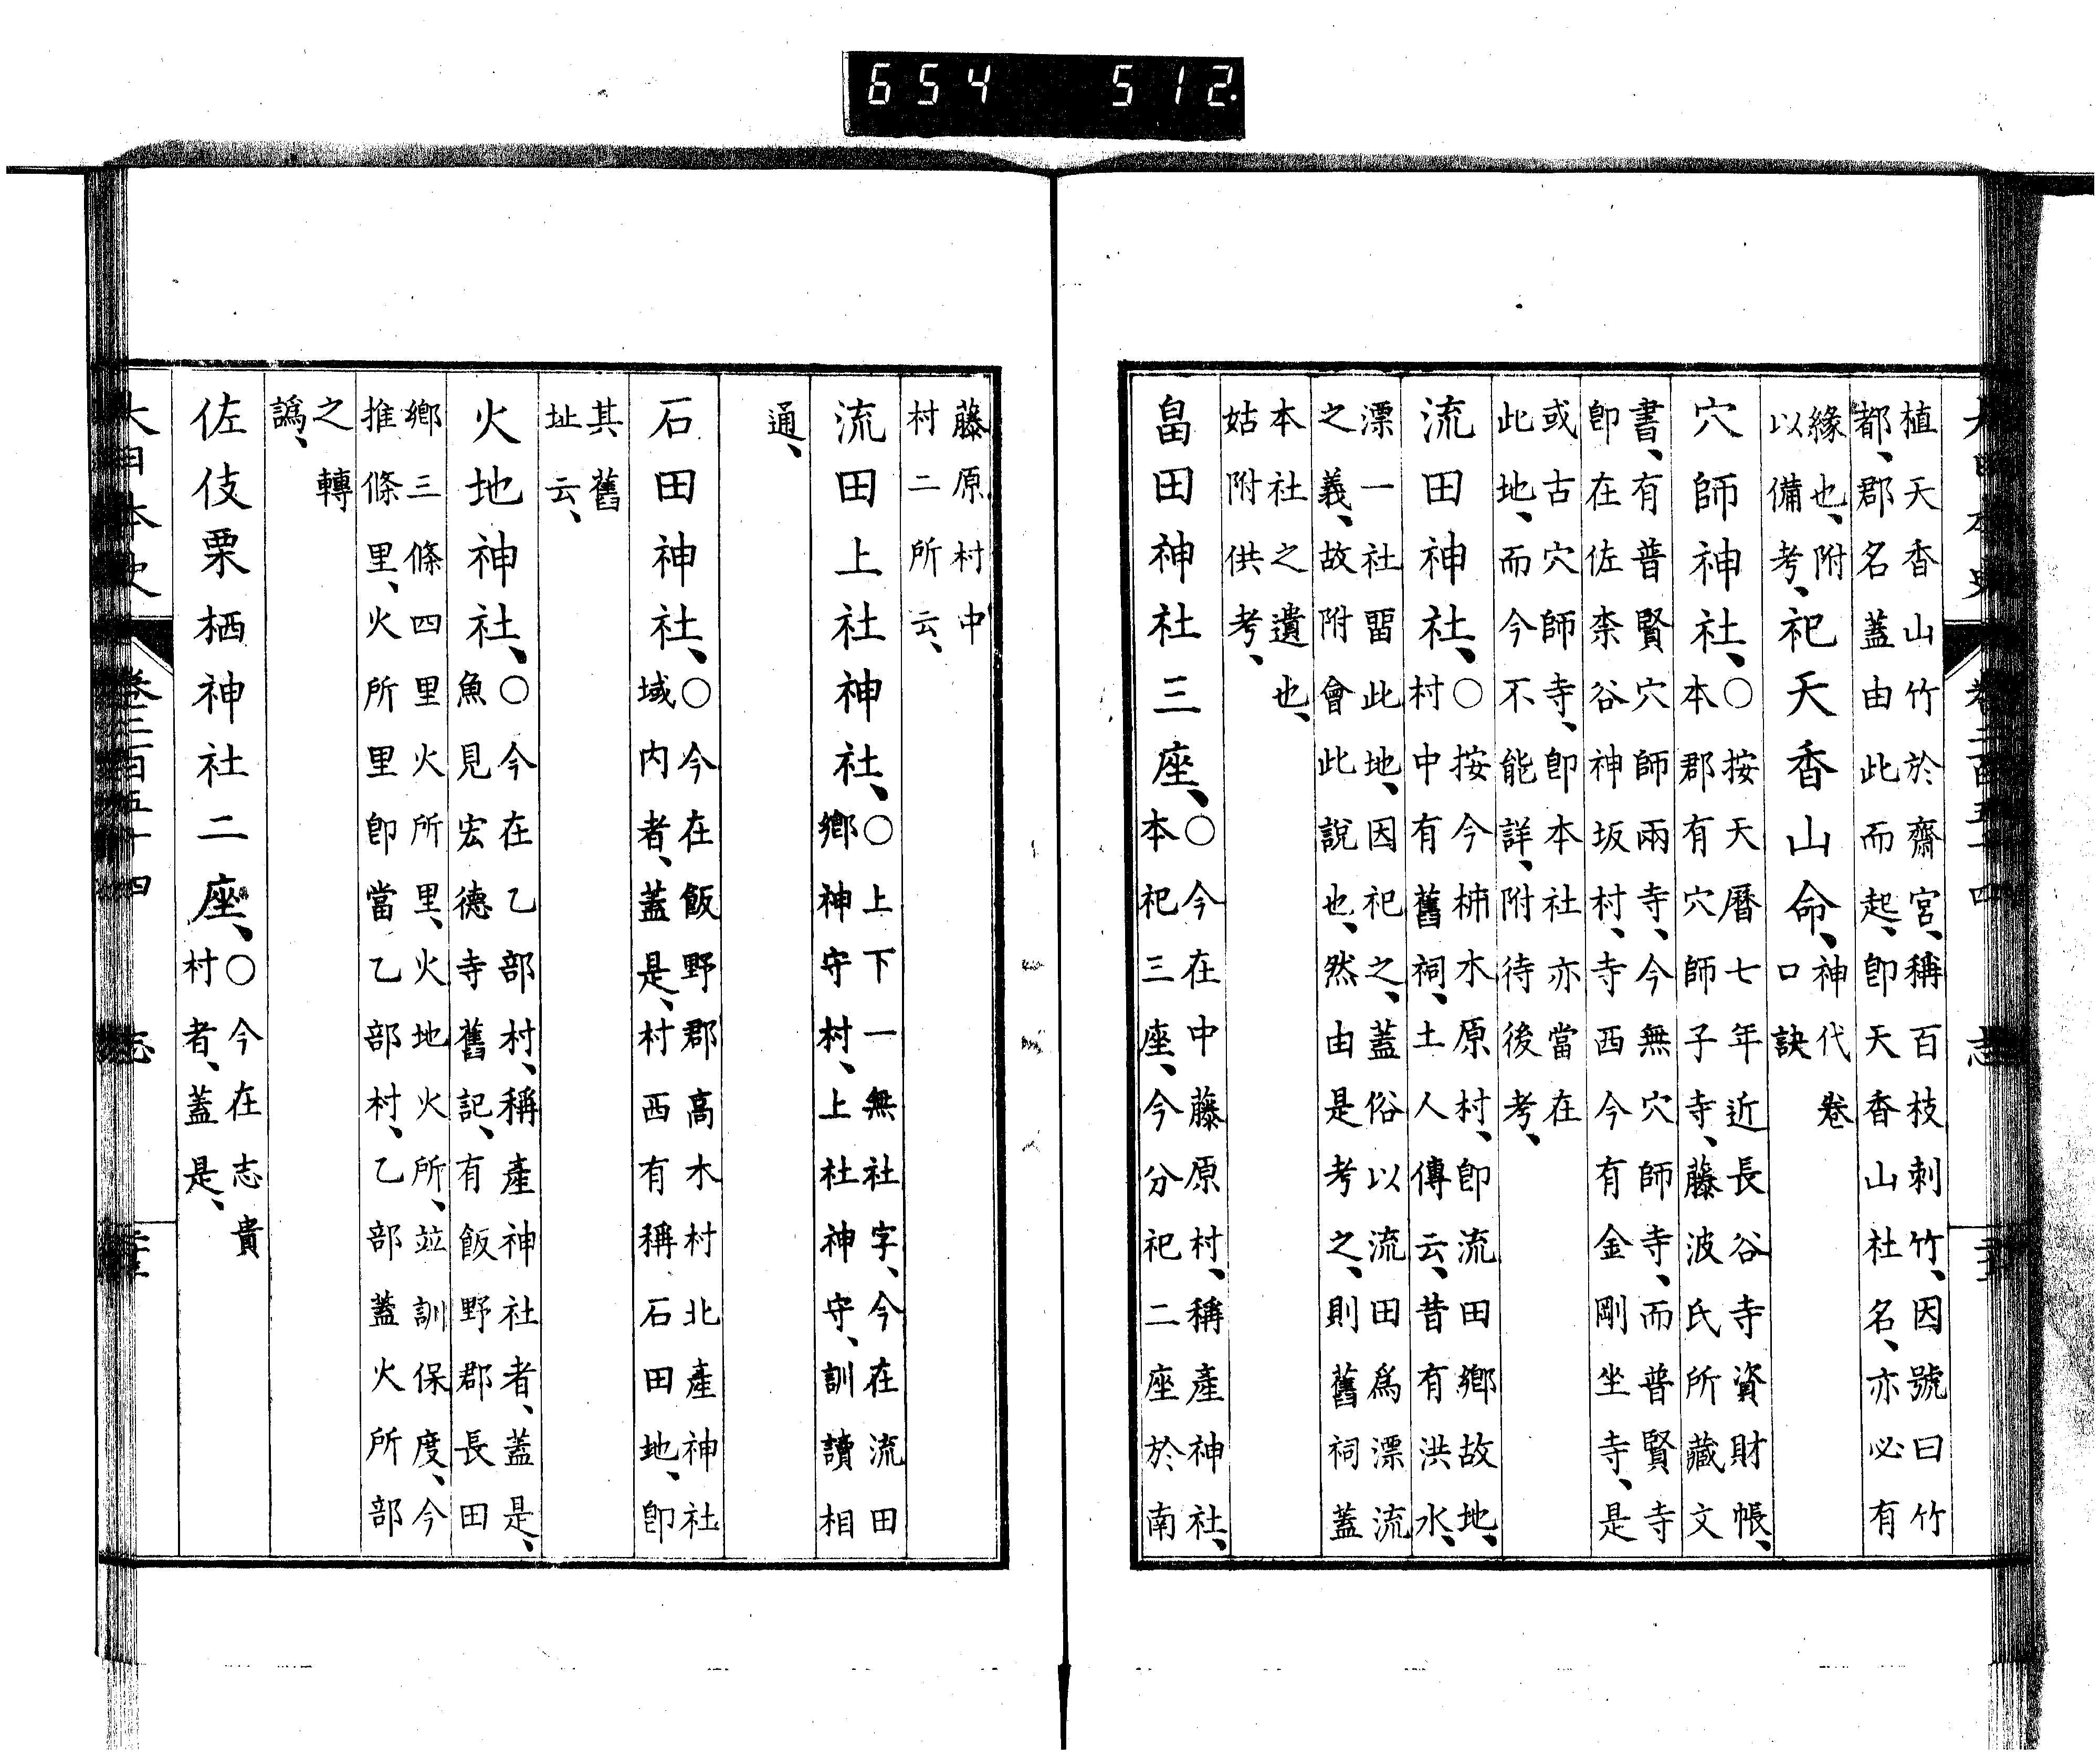 654 512.
大日本史 卷二百五十四 志
植天香山竹於齋宮、稱百枝刺竹、因號曰竹
都、郡名蓋由此而起、卽天香山社名、亦必有
緣也、附
以備考、祀天香山命、神代卷
口訣
穴師神社、○按天曆七年近長谷寺資財帳、
本郡有穴師子寺、藤波氏所藏文
書、有普賢穴師兩寺、今無穴師寺、而普賢寺
卽在佐柰谷神坂村、寺西今有金剛坐寺、是
或古穴師寺、卽本社亦當在
此地、而今不能詳、附待後考、
流田神社、○按今楠木原村、卽流田鄕故地、
村中有舊祠、土人傳云、昔有洪水、
漂一社畱此地、因祀之、蓋俗以流田爲漂流
之義、故附會此說也、然由是考之、則舊祠蓋
本社之遺也、
姑附供考、
畠田神社三座、○今在中藤原村、稱產神社、
本祀三座、今分祀二座於南
藤原村中
村二所云、
流田上社神社、○上下一無社字、今在流田
鄕神守村、上社神守、訓讀相
通、
石田神社、○今在飯野郡高木村北產神社
域內者、蓋是、村西有稱石田地、卽
其舊
址云、
火地神社、○今在乙部村、稱產神社者、蓋是、
魚見宏德寺舊記、有飯野郡長田
鄕三條四里火所里、火地火所、竝訓保度、今
推條里、火所里卽當乙部村、乙部蓋火所部
之轉
譌、
佐伎栗栖神社二座、○今在志貴
村者、蓋是、
大日本史 卷二百五十四 志